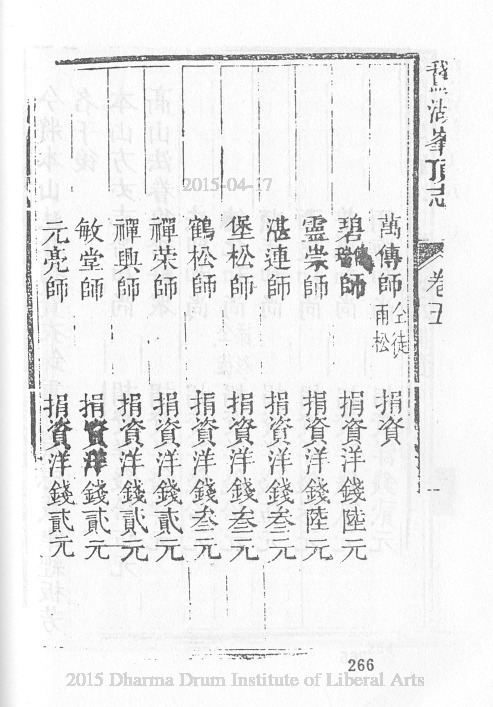 鵞湖峯頂志　卷五
萬傳師　仝徒雨松　捐資
碧瑞師　捐資洋錢陸元
靈崇師　捐資洋錢陸元
湛連師　捐資洋錢叁元
堡松師　捐資洋錢叁元
鶴松師　捐資洋錢叁元
禪荣師　捐資洋錢貳元
禪興師　捐資洋錢貳元
敏堂師　捐資洋錢貳元
元亮師　捐資洋錢貳元
266
2015-04-17
2015 Dharma Drum Institute of Liberal Arts